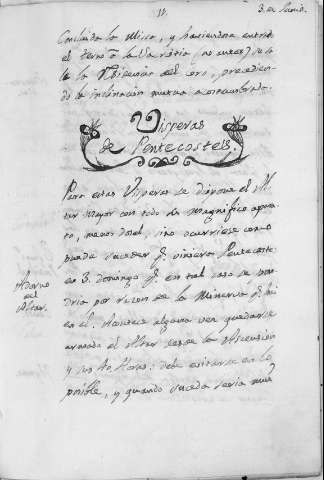 11.
3. de Junio.
Concluida la Missa, y haviendose entrado
el terno a la Sacristia (no antes) se ca
le la Rdicion del coro, precedien
do la inclinacion mutua acostumbrada.
Visperas
de Pentecostes.
Para estas Visperas se dispone el Al
tar mayor con todo su magnifico apara
to, menos dosel, sino ocurriese como
puede suceder q. viniera Pentecostes
en 3. domingo q. en tal caso se pon
dria por razon de la Minerva q. hai
en el. Acontece alguna vez quedarse
armado el Altar desde la Ascension
y sus 40 Horas: debe evitarse en lo
posible, y quando suceda seria muy
Adorno
del
Altar.